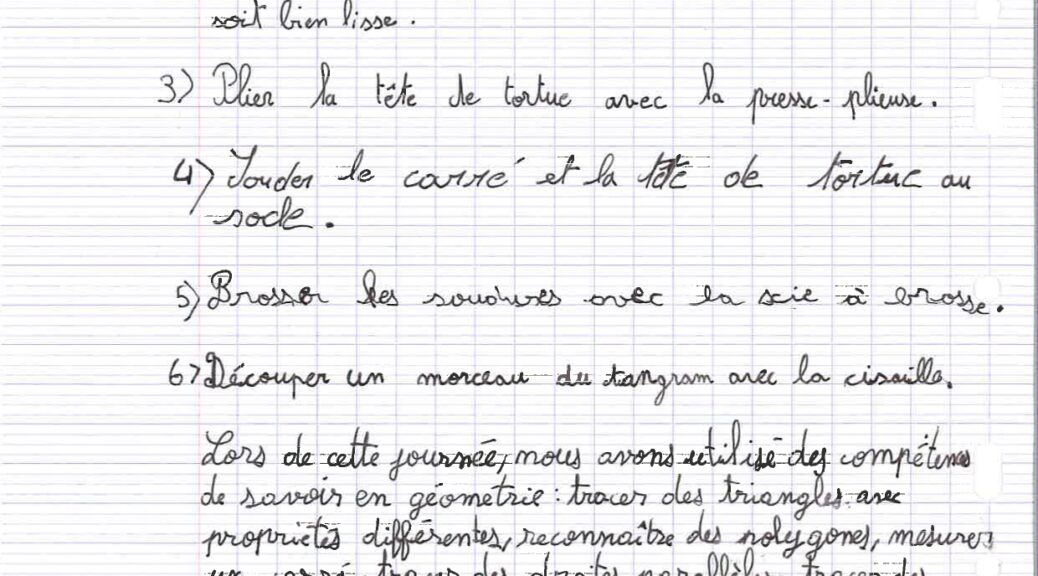 soit bien lisse.
3) Plier la tête de tortue avec la presse-plieuse.
4) Souder le carré et la tête de tortue au
socle.
5) Brosser les soudures avec la scie à brosse.
6) Découper un morceau du tangram avec la cisaille.
Lors de cette journée, nous avons utilisé des compétences
de savoir en géometrie : tracer des triangles avec
propriétés différentes, reconnaître des polygones, mesurer
un carré, tracer des droites parallèles, tracer des